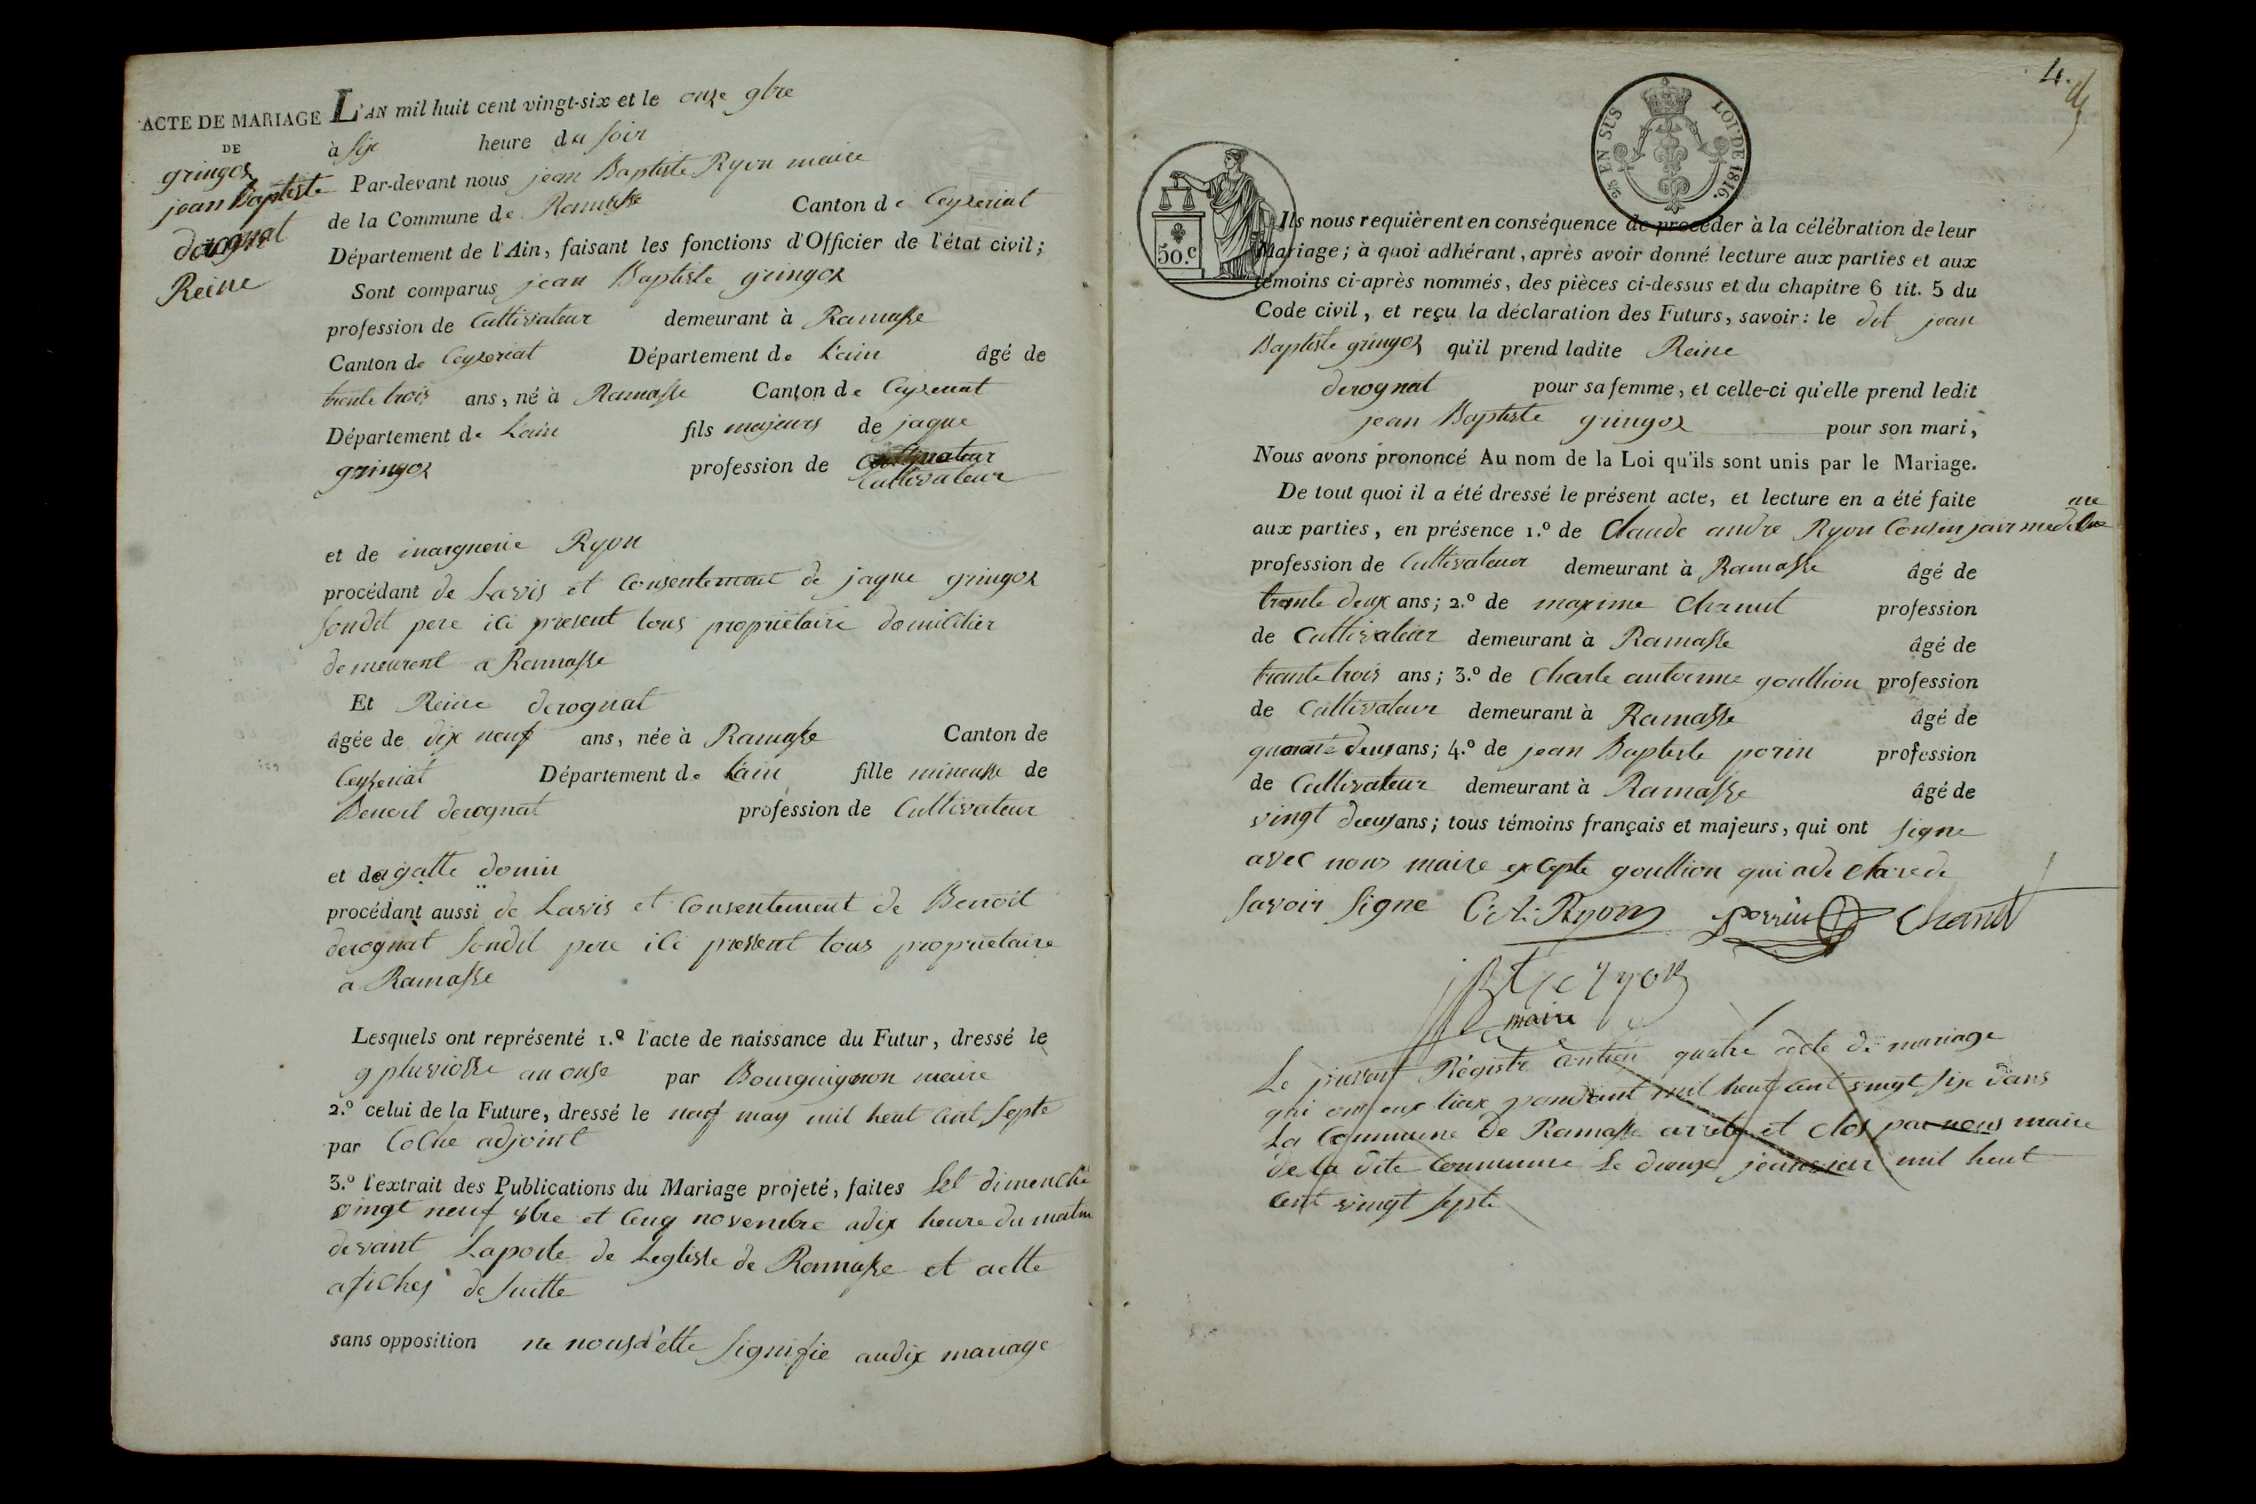 ACTE DE MARIAGE
DE
gringoz
jean Baptiste
derognat
Reine
L'AN mil huit cent vingt-six et le onze 9bre
à six heure du soir
Par-devant nous jean Baptiste Ryon maire
de la Commune de Ramasse Canton de Ceyzeriat
Département de l'Ain, faisant les fonctions d'Officier de l'état civil;
Sont comparus jean Baptiste gringoz
profession de Cultivateur demeurant à Ramasse
Canton de Ceyzeriat Département de Lain âgé de
trente trois ans, né à Ramasse Canton de Ceyzeriat
Département de Lain fils majeurs de jaque
gringoz profession de Cultivateur
Cultivateur
et de Ryon
procédant de Lavis et Consentement de jaque gringoz
sondit pere ici present tous propriëtaire domicilier
demeurent a Ramasse
Et Reine derognat
âgée de dix neuf ans, née à Ramasse Canton de
Ceyzeriat Département de Lain fille mineusse de
Benoit derognat profession de Cultivateur
et de agatte donin
procédant aussi de Lavis et Consentement de Benoit
derognat sondit pere ici present tous proprietaire
a Ramasse
Lesquels ont représenté 1.º l'acte de naissance du Futur, dressé le
9 pluviosse an onse par Bourguignon maire
2.º celui de la Future, dressé le neuf may mil heut cent septe
par Coche adjoint
3.º l'extrait des Publications du Mariage projeté, faites les dimenche
vingt neuf 8bre et cinq novembre adix heure du matin
devant Laporte de Leglisse de Ramasse et aette
afichez de suitte
sans opposition ne nousd'ette signifie audix mariage
4.
EN SUS LOI DE 1816.
50.c
Ils nous requièrent en conséquence de procéder à la célébration de leur
Mariage; à quoi adhérant, après avoir donné lecture aux parties et aux
témoins ci-après nommés, des pièces ci-dessus et du chapitre 6 tit. 5 du
Code civil, et reçu la déclaration des Futurs, savoir: le dit jean
Baptiste gringoz qu'il prend ladite Reine
derognat pour sa femme, et celle-ci qu'elle prend ledit
jean Baptiste gringoz pour son mari,
Nous avons prononcé Au nom de la Loi qu'ils sont unis par le Mariage.
De tout quoi il a été dressé le présent acte, et lecture en a été faite
aux parties, en présence 1.º de Claude andre Ryon Cousin
profession de Cultivateur demeurant à Ramasse âgé de
trante deux ans; 2.º de maxime Chanut profession
de Cultivateur demeurant à Ramasse âgé de
trante trois ans; 3.º de Charle antoinne goullion profession
de Cultivateur demeurant à Ramasse âgé de
quarante deux ans; 4.º de jean Baptiste porin profession
de Cultivateur demeurant à Ramasse âgé de
vingt deux ans; tous témoins français et majeurs, qui ont signe
avec nous maire excepte goullion qui
savoir signe C: A: Ryon Perrin Chanut
maire
Le présent Régistre Contien quatre acte de mariage
qui ont eux lieux pandant mil heut cent vingt six dans
La Commune de Ramasse arrete et clos par nous maire
de la dite Commune Le deuxe jeanvier mil heut
Cent vingt septe